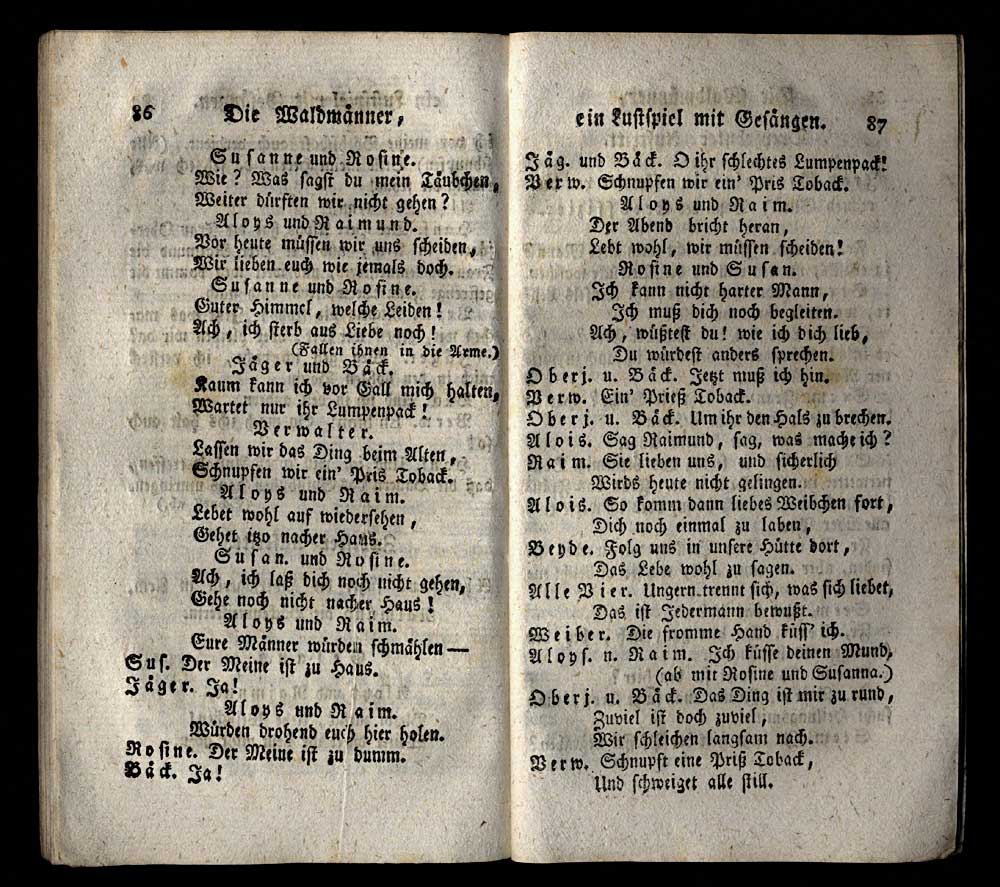 86 Die Waldmänner,
Susanne und Rosine.
Wie? Was sagst du mein Täubchen,
Weiter dürften wir nicht gehen?
Aloys und Raimund.
Vor heute müssen wir uns scheiden,
Wir lieben euch wie jemals doch.
Susanne und Rosine.
Guter Himmel, welche Leiden!
Ach, ich sterb aus Liebe noch!
(Fallen ihnen in die Arme.)
Jäger und Bäck.
Kaum kann ich vor Gall mich halten,
Wartet nur ihr Lumpenpack!
Verwalter.
Lassen wir das Ding beim Alten,
Schnupfen wir ein' Pris Toback.
Aloys und Raim.
Lebet wohl auf wiedersehen,
Gehet itzo nacher Haus.
Susan. und Rosine.
Ach, ich laß dich noch nicht gehen,
Gehe noch nicht nacher Haus!
Aloys und Raim.
Eure Männer würden schmählen —
Sus. Der Meine ist zu Haus.
Jäger. Ja!
Aloys und Raim.
Würden drohend euch hier holen.
Rosine. Der Meine ist zu dumm.
Bäck. Ja!
ein Lustspiel mit Gesängen. 87
Jäg. und Bäck. O ihr schlechtes Lumpenpack!
Verw. Schnupfen wir ein' Pris Toback.
Aloys und Raim.
Der Abend bricht heran,
Lebt wohl, wir müssen scheiden!
Rosine und Susan.
Ich kann nicht harter Mann,
Ich muß dich noch begleiten.
Ach, wüßtest du! wie ich dich lieb,
Du würdest anders sprechen.
Oberj. u. Bäck. Jetzt muß ich hin.
Verw. Ein' Prieß Toback.
Oberj. u. Bäck. Um ihr den Hals zu brechen.
Alois. Sag Raimund, sag, was mache ich?
Raim. Sie lieben uns, und sicherlich
Wirds heute nicht gelingen.
Alois. So komm dann liebes Weibchen fort,
Dich noch einmal zu laben,
Beyde. Folg uns in unsere Hütte dort,
Das Lebe wohl zu sagen.
Alle Vier. Ungern trennt sich, was sich liebet,
Das ist Jedermann bewußt.
Weiber. Die fromme Hand küss' ich.
Aloys. n. Raim. Ich küsse deinen Mund.
(ab mit Rosine und Susanna.)
Oberj. u. Bäck. Das Ding ist mir zu rund,
Zuviel ist doch zuviel,
Wir schleichen langsam nach.
Verw. Schnupft eine Priß Toback,
Und schweiget alle still.